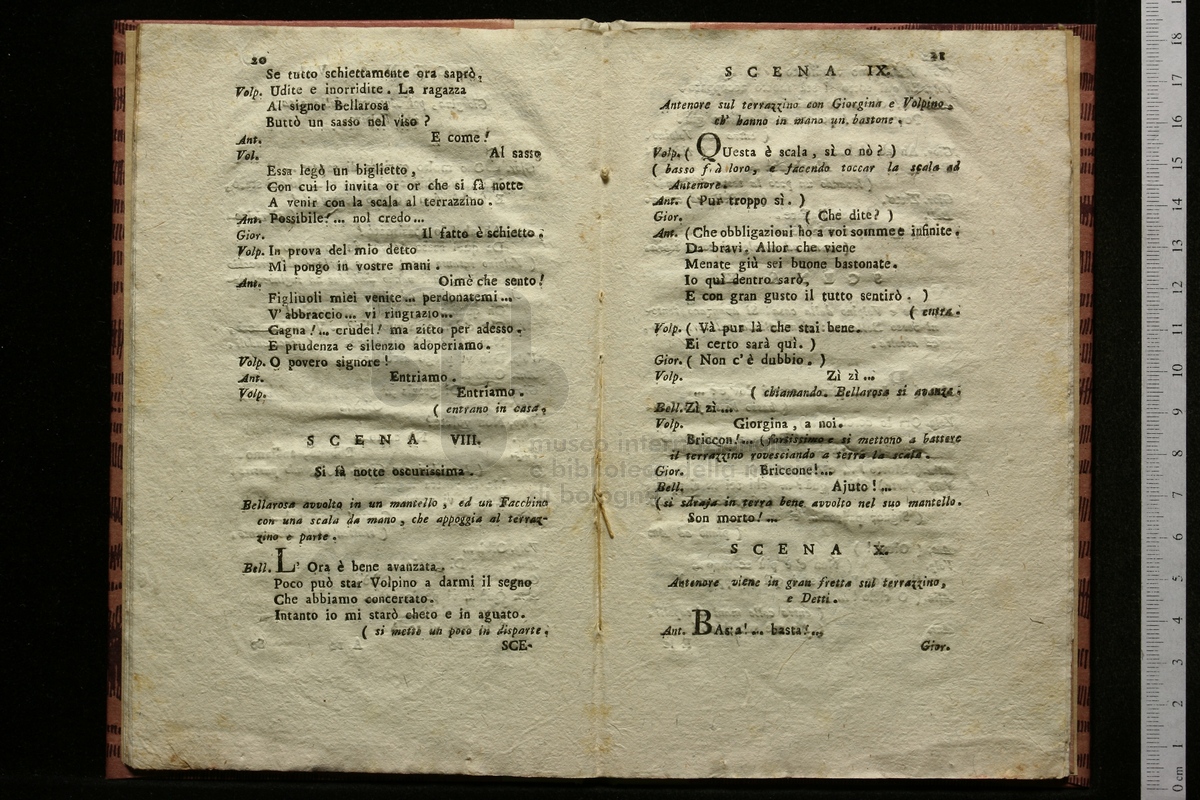 20
Se tutto schiettamente ora saprò,
Volp. Udite e inorridite. La ragazza
Al signor Bellarosa
Buttò un sasso nel viso?
Ant. E come!
Vol. Al sasso
Essa legò un biglietto,
Con cui lo invita or or che si fà notte
A venir con la scala al terrazzino.
Ant. Possibile!... nol credo...
Gior. Il fatto è schietto.
Volp. In prova del mio detto
Mi pongo in vostre mani.
Ant. Oimè che sento!
Figliuoli miei venite... perdonatemi...
V'abbraccio... vi ringrazio...
Cagna!... crudel! ma zitto per adesso.
E prudenza e silenzio adoperiamo.
Volp. O povero signore!
Ant. Entriamo.
Volp. Entriamo.
( entrano in casa,
SCENA VIII.
Si fà notte oscurissima.
Bellarosa avvolto in un mantello, ed un Facchino
con una scala da mano, che appoggia al terraz-
zino e parte.
Bell. L'Ora è bene avanzata.
Poco può star Volpino a darmi il segno
Che abbiamo concertato.
Intanto io mi starò cheto e in aguato.
( si mette un poco in disparte.
SCE-
21
SCENA IX.
Antenore sul terrazzino con Giorgina e Volpino,
ch' hanno in mano un bastone.
Volp. ( QUesta è scala, sì o nò? )
( basso frà loro, e facendo toccar la scala ad
Antenore.
Ant. ( Pur troppo sì. )
Gior. ( Che dite? )
Ant. ( Che obbligazioni ho a voi somme e infinite.
Da bravi. Allor che viene
Menate giù sei buone bastonate.
Io quì dentro sarò,
E con gran gusto il tutto sentirò. )
( entra.
Volp. ( Và pur là che stai bene.
Ei certo sarà quì. )
Gior. ( Non c'è dubbio. )
Volp. Zì zì...
( chiamando. Bellarosa si avanza.
Bell. Zì zì...
Volp. Giorgina, a noi.
Briccon!... ( fortissimo e si mettono a battere
il terrazzino rovesciando a terra la scala.
Gior. Briccone!...
Bell. Ajuto!...
( si sdraja in terra bene avvolto nel suo mantello.
Son morto!...
SCENA X.
Antenore viene in gran fretta sul terrazzino,
e Detti.
Ant. BAsta!... basta!...
Gior.
museo inter
e biblioteca della m
bologn
0 cm 1 2 3 4 5 6 7 8 9 10 11 12 13 14 15 16 17 18